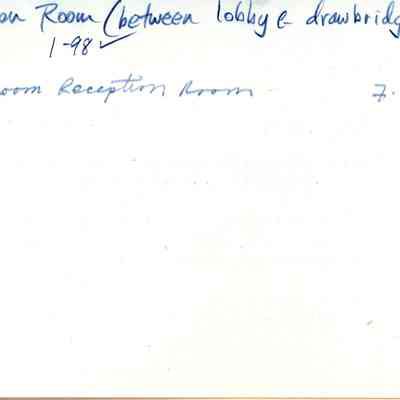 on Room (between lobby & drawbridg
1-98 ✓
oom Reception Room 7.